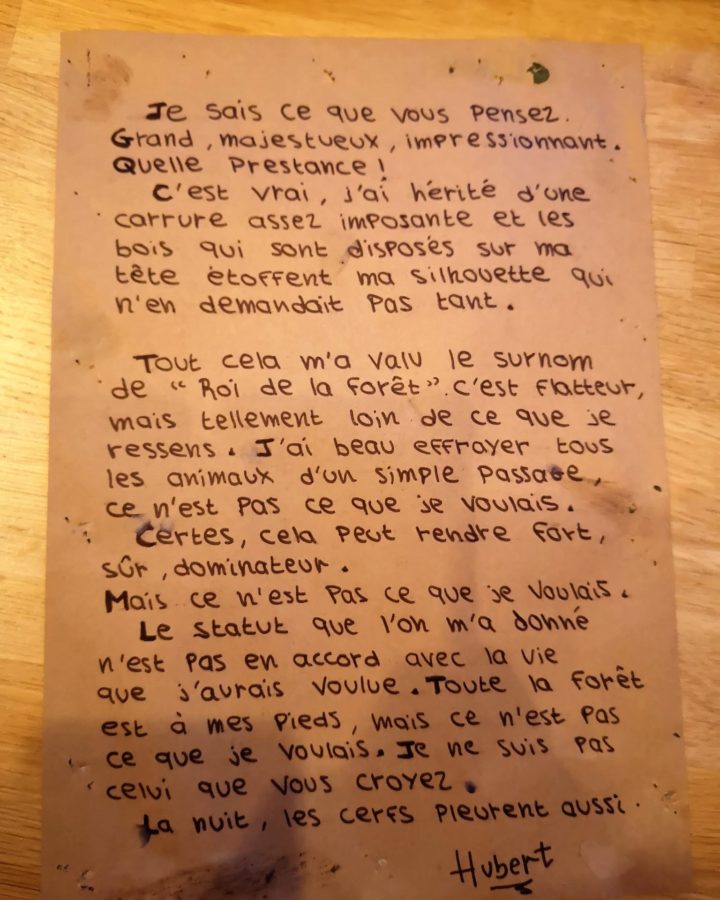 Je sais ce que vous pensez.
Grand, majestueux, impressionnant.
Quelle Prestance !
C'est vrai, j'ai hérité d'une
carrure assez imposante et les
bois qui sont disposés sur ma
tête étoffent ma silhouette qui
n'en demandait pas tant.
Tout cela m'a valu le surnom
de “Roi de la forêt”. C'est flatteur,
mais tellement loin de ce que je
ressens. J'ai beau effrayer tous
les animaux d'un simple passage,
ce n'est pas ce que je voulais.
Certes, cela peut rendre fort,
sûr, dominateur.
Mais ce n'est pas ce que je voulais.
Le statut que l'on m'a donné
n'est pas en accord avec la vie
que j'aurais voulue. Toute la forêt
est à mes pieds, mais ce n'est pas
ce que je voulais. Je ne suis pas
celui que vous croyez.
La nuit, les cerfs pleurent aussi.
Hubert